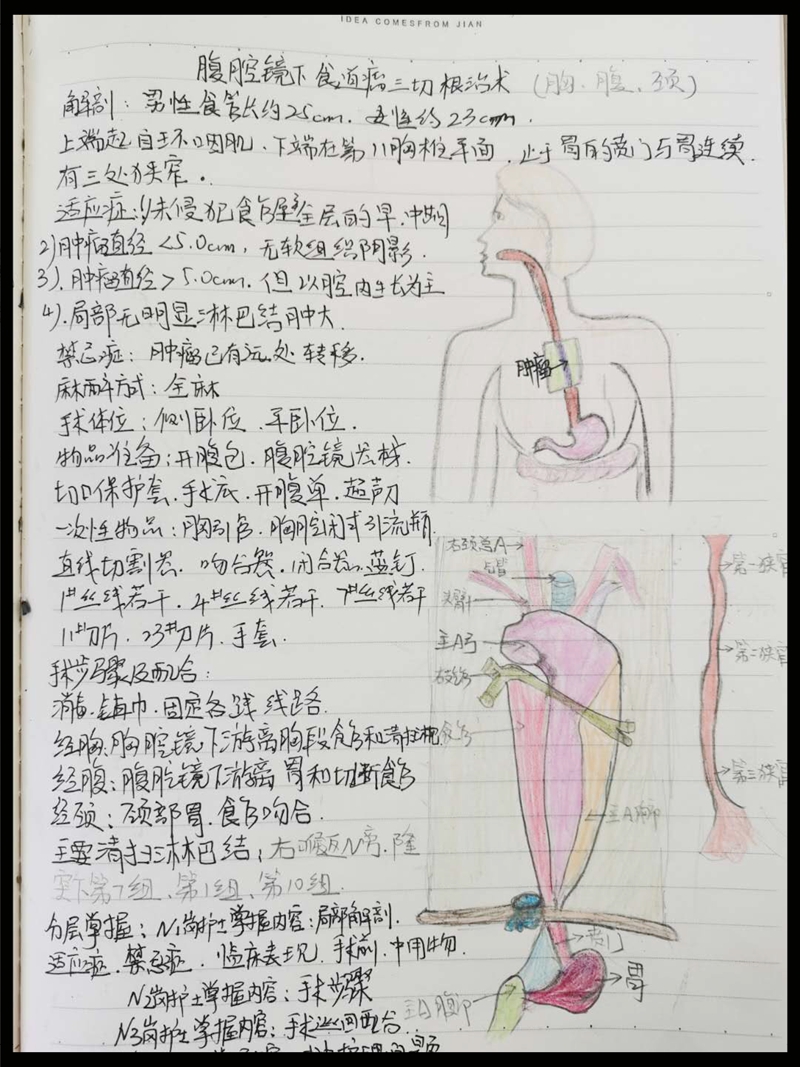 IDEA COMESFROM JIAN
腹腔镜下食道癌三切根治术（胸、腹、颈）
解剖：男性食管长约25cm．女性约23cm．
上端起自于环咽肌、下端在第11胸椎平面、止于胃的贲门与胃连续．
有三处狭窄．
适应症：1)未侵犯食管全层的早．中期
2)肿瘤直径＜5.0cm，无软组织阴影．
3)．肿瘤直径＞5.0cm．但以腔内生长为主
4)．局部无明显淋巴结肿大．
禁忌症：肿瘤已有远处转移．
麻醉方式：全麻
手术体位：侧卧位、平卧位．
物品准备：开腹包．腹腔镜器械．
切口保护套、手术底、开腹单．超声刀
一次性物品：胸引管．胸腔闭式引流瓶．
直线切割器．吻合器．闭合器．蓝钉．
1#丝线若干．4#丝线若干．7#丝线若干
11#刀片．23#刀片．手套．
手术步骤及配合：
消毒．铺巾．固定各线线路．
经胸：胸腔镜下游离胸段食管和清扫
经腹：腹腔镜下游离胃和切断食管
经颈：颈部胃．食管吻合．
主要清扫淋巴结：右喉返N旁．隆
突下第7组、第1组、第10组．
分层掌握：N1岗护士掌握内容：局部解剖．
适应症．禁忌症．临床表现．术前．中用物．
N2岗护士掌握内容：手术步骤
N3岗护士掌握内容：手术巡回配合．
肿瘤
右颈总A
气管
头臂干
主A弓
食管
主A胸部
贲门
胃
主A腹部
第一狭窄
第二狭窄
第三狭窄